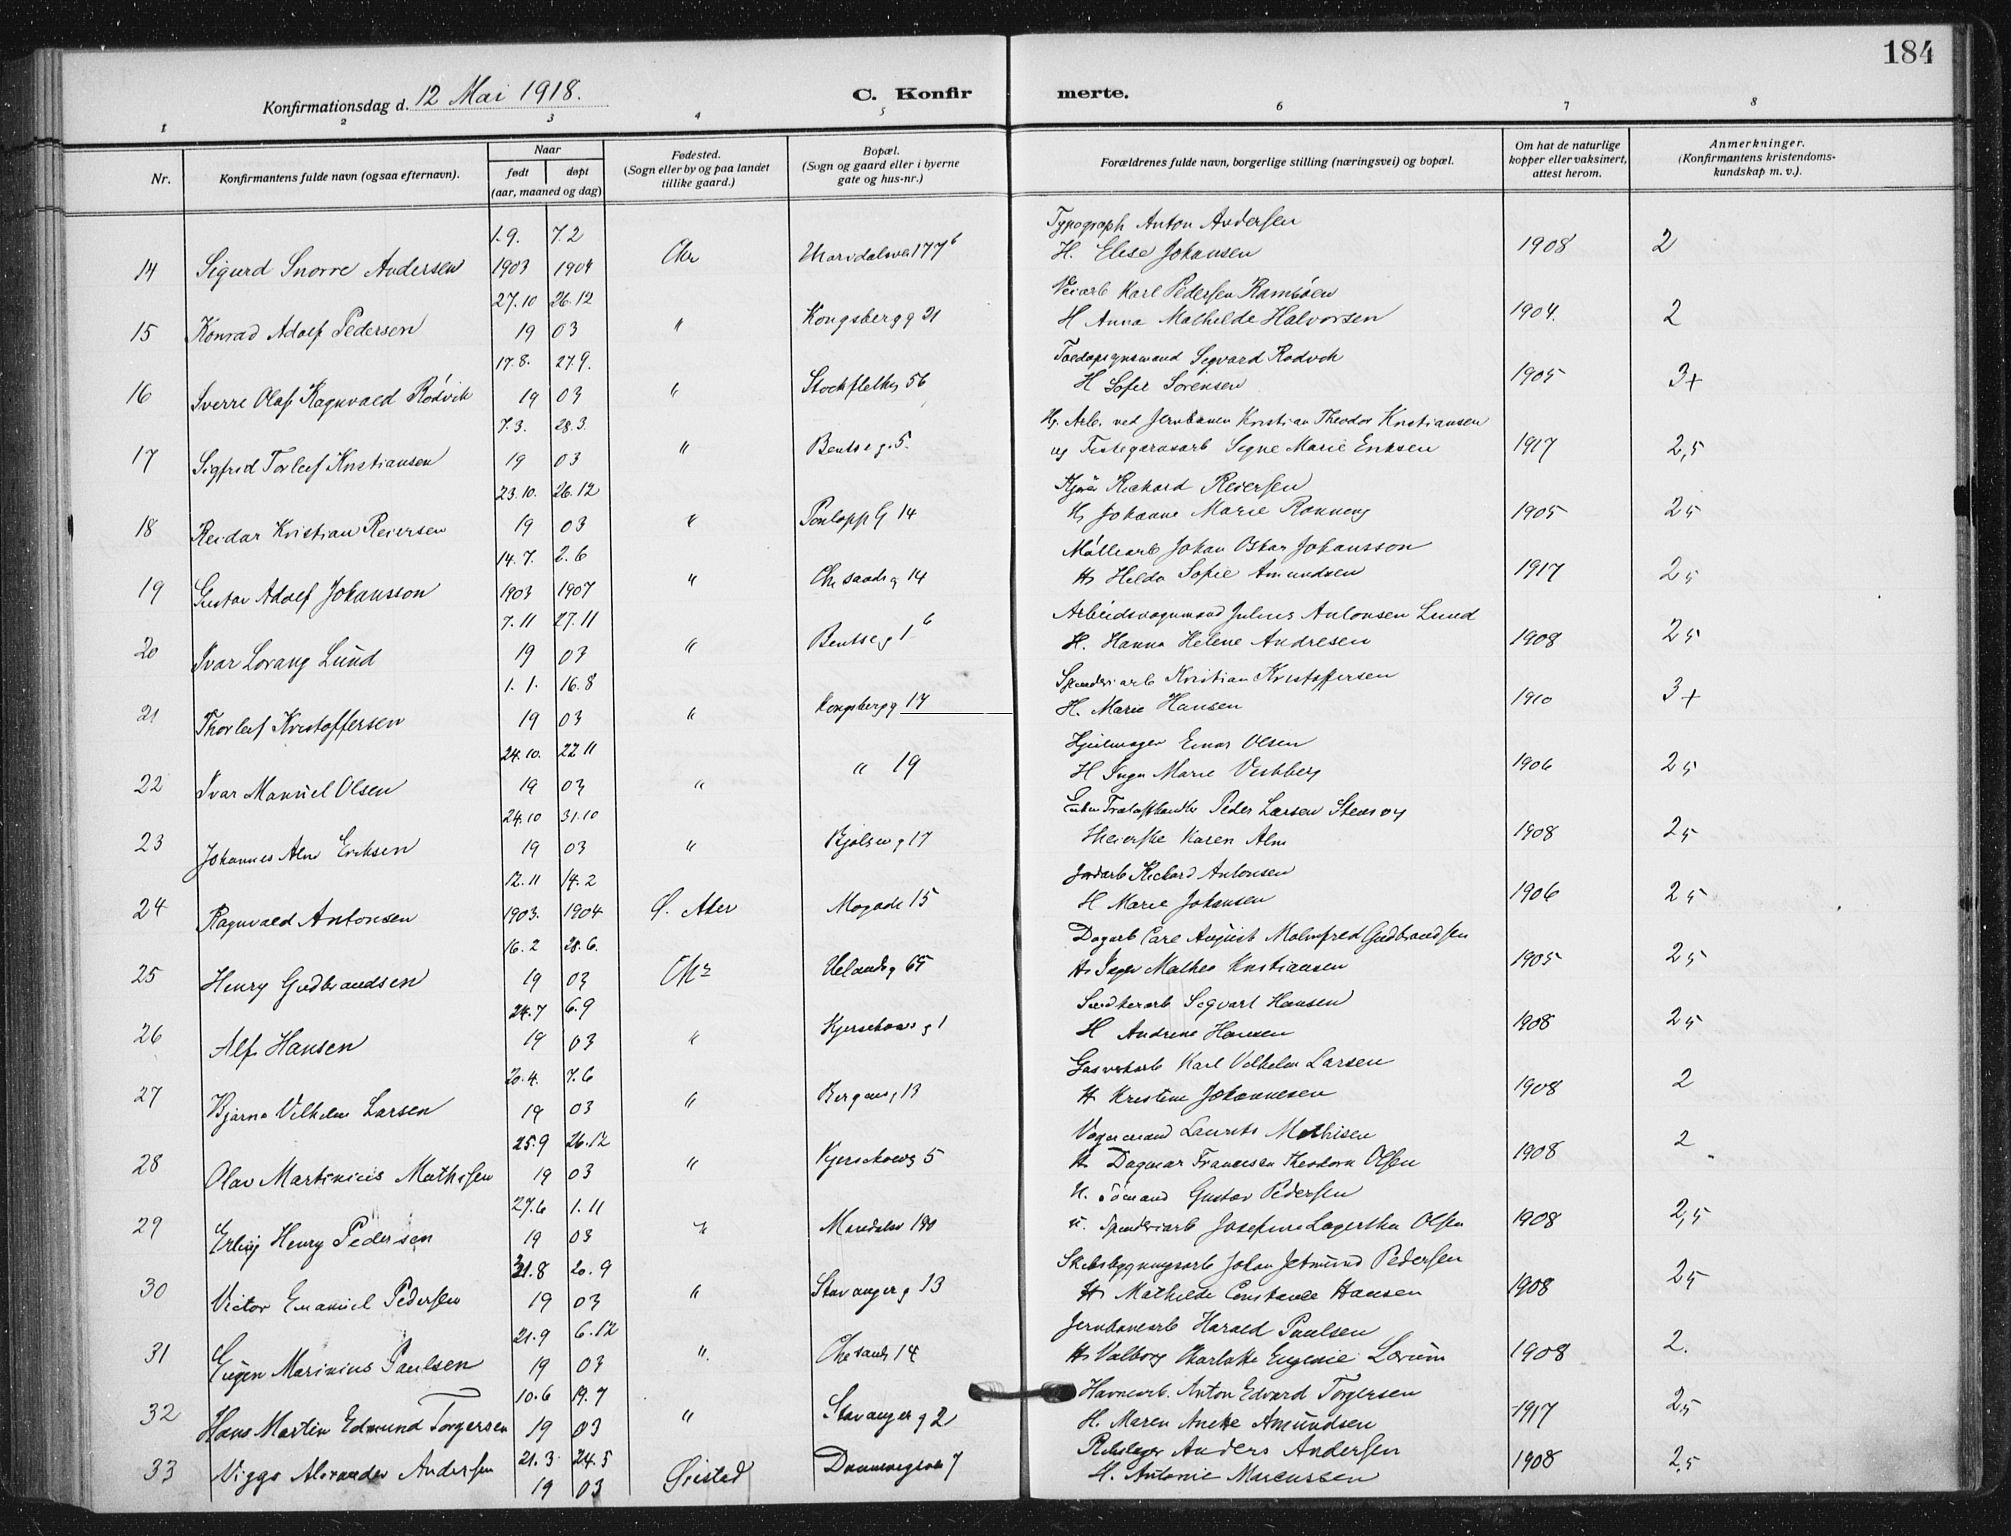 184
Konfirmationsdag d. 12 Mai 1918.
C. Konfirmerte.
1 2 3 4 5 6 7 8
Nr.
Konfirmantens fulde navn (ogsaa efternavn).
Naar
født døpt
(aar, maaned og dag)
Fødested.
(Sogn eller by og paa landet
tillike gaard.)
Bopæl.
(Sogn og gaard eller i byerne
gate og hus-nr.)
Forældrenes fulde navn, borgerlige stilling (næringsvei) og bopæl.
Om hat de naturlige
kopper eller vaksinert,
attest herom.
Anmerkninger.
(Konfirmantens kristendoms-
kundskap m. v.).
1.9. 7.2 Typograph Anton Andersen
14 Sigurd Snorre Andersen 1903 1904 Chr 177 b H. Elise Johansen 1908 2
27.10 26.12 Veiarb Karl Pedersen
15 Konrad Adolf Pedersen 19 03 " Kongsberg g 21 H Anna Mathilde Halvorsen 1904. 2
17.8. 27.9. Rødvik
16 Sverre Olaf Ragnvald Rødvik 19 03 " 56 H Sofie Sørensen 1905 3+
7.3. 28.3. Arb. ved Jernbanen Kristian Theodor Kristiansen
17 Sigfred Torleif Kristiansen 19 03 " Bentse g. 5. og Signe Marie Eriksen 1917 2,5
23.10. 26.12 Richard Reiersen
18 Reidar Kristian Reiersen 19 03 " 14 H Johanne Marie 1905 25
14.7. 2.6 Møllearb Johan Oskar Johansson
19 Gustav Adolf Johansson 1903 1907 " Chr sands g 14 H Hilda Sofie Amundsen 1917 25
7.11 27.11 Julius Antonsen Lund
20 Ivar Lorang Lund 19 03 " Bentse g 1 b H. Hanna Helene Andresen 1908 25
1.1. 16.8 Spinderiarb Kristian Kristoffersen
21 Thorleif Kristoffersen 19 03 " Kongsberg g 17 H. Marie Hansen 1910 3+
24.10. 22.11 Hjulmager Einar Olsen
22 Ivar Manuel Olsen 19 03 " " 19 H Inga Marie 1906 25
24.10 31.10 Peder Larsen
23 Johannes Alm Eriksen 19 03 " 17 Meierske Karen Alm 1908 25
12.11 14.2 Richard Antonsen
24 Ragnvald Antonsen 1903. 1904 Ø. Aker Mogade 15 H Marie Johansen 1906 25
16.2 28.6. Dagarb Carl August Malmfred Gudbrandsen
25 Henry Gudbrandsen 19 03 Chr Uelands g 65 H Inger Mathea Kristiansen 1905 25
24.7 6.9 Snedkerarb Sigvart Hansen
26 Alf Hansen 19 03 " Kjerschows g 1 H Andrine Hansen 1908 25
20.4. 7.6 Gasverkarb Karl Vilhelm Larsen
27 Bjarne Vilhelm Larsen 19 03 " Bergens g 13 H Kristine Johannesen 1908 2
25.9 26.12 Vognmand Laurits Mathisen
28 Olav Martinius Mathisen 19 03 " Kjerschows 5 H Dagmar Theodora Olsen 1908 2
27.6 1.11 Gustav Pedersen
29 Erling Henry Pedersen 19 03 " u. Spinderiarb Josefine Lagertha Olsen 1908 2,5
21.8 20.9 Skibsbygningsarb Johan Pedersen
30 Victor Emanuel Pedersen 19 03 " Stavanger g 13 H Mathilde Constance Hansen 1908 25
21.9 6.12 Jernbanearb Harald Paulsen
31 Eugen Marinius Paulsen 19 03 ". Chr sands 14 H Valborg Charlotte Eugenie 1908 2.
10.6 19.7 Havnearb. Anton Edvard Torgersen
32 Hans Martin Edmund Torgersen 19 03 " Stavanger g 2 H. Maren Amundsen 1917 25
21.3. 24.5 Anders Andersen
33 Viggo Alexander Andersen 19 03 7 H. Antonie Marcussen 1908 2,5